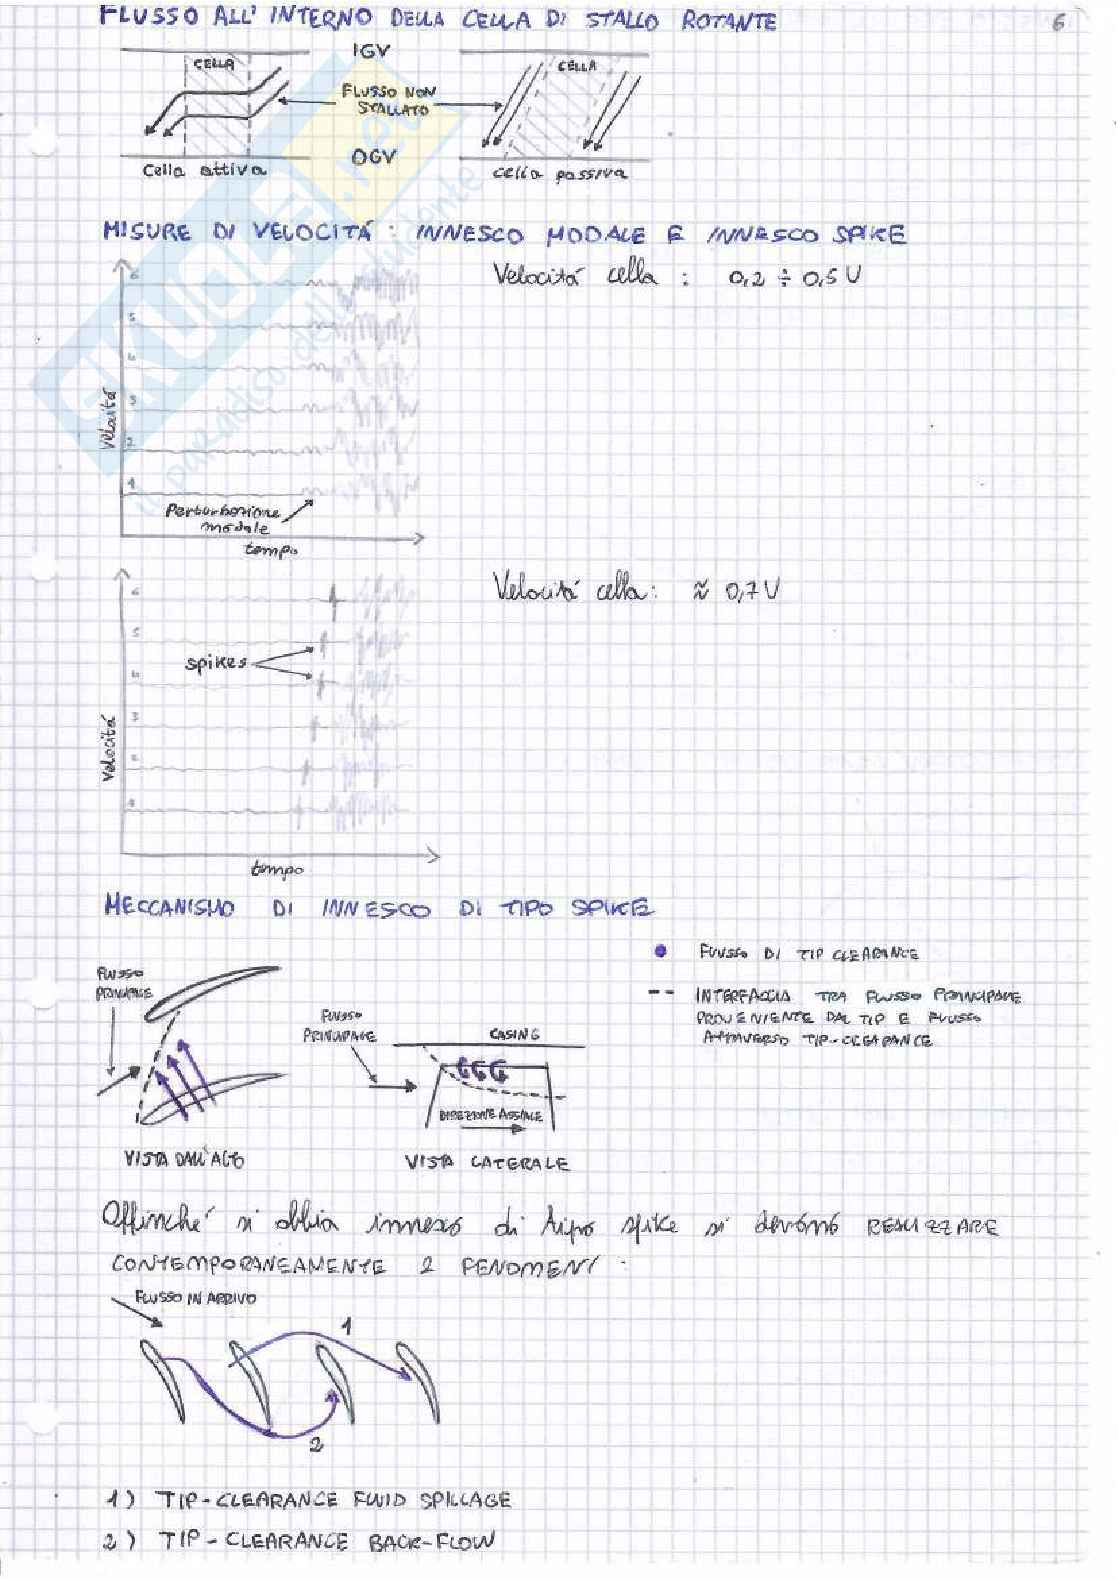 FLUSSO ALL'INTERNO DELLA CELLA DI STALLO ROTANTE
6
CELLA
IGV
CELLA
FLUSSO NON
STALLATO
OGV
Cella attiva
cella passiva
MISURE DI VELOCITÁ: INNESCO MODALE E INNESCO SPIKE
Velocitá cella : 0,2 ÷ 0,5 U
6
5
4
3
2
1
Velocitá
Perturbazione
modale
tempo
Velocitá cella: ≈ 0,7 U
6
5
spikes
4
3
2
1
Velocitá
tempo
MECCANISMO DI INNESCO DI TIPO SPIKE
FLUSSO DI TIP CLEARANCE
INTERFACCIA TRA FLUSSO PRINCIPALE
PROVENIENTE DAL TIP E FLUSSO
ATTRAVERSO TIP-CLEARANCE
FLUSSO
PRINCIPALE
FLUSSO
PRINCIPALE
CASING
DIREZIONE ASSIALE
VISTA DALL'ALTO
VISTA LATERALE
Affinché si abbia innesco di tipo spike si devono REALIZZARE
CONTEMPORANEAMENTE 2 FENOMENI :
FLUSSO IN ARRIVO
1
2
1) TIP-CLEARANCE FLUID SPILLAGE
2) TIP-CLEARANCE BACK-FLOW
SKUOLA.net
il paradiso dello studente